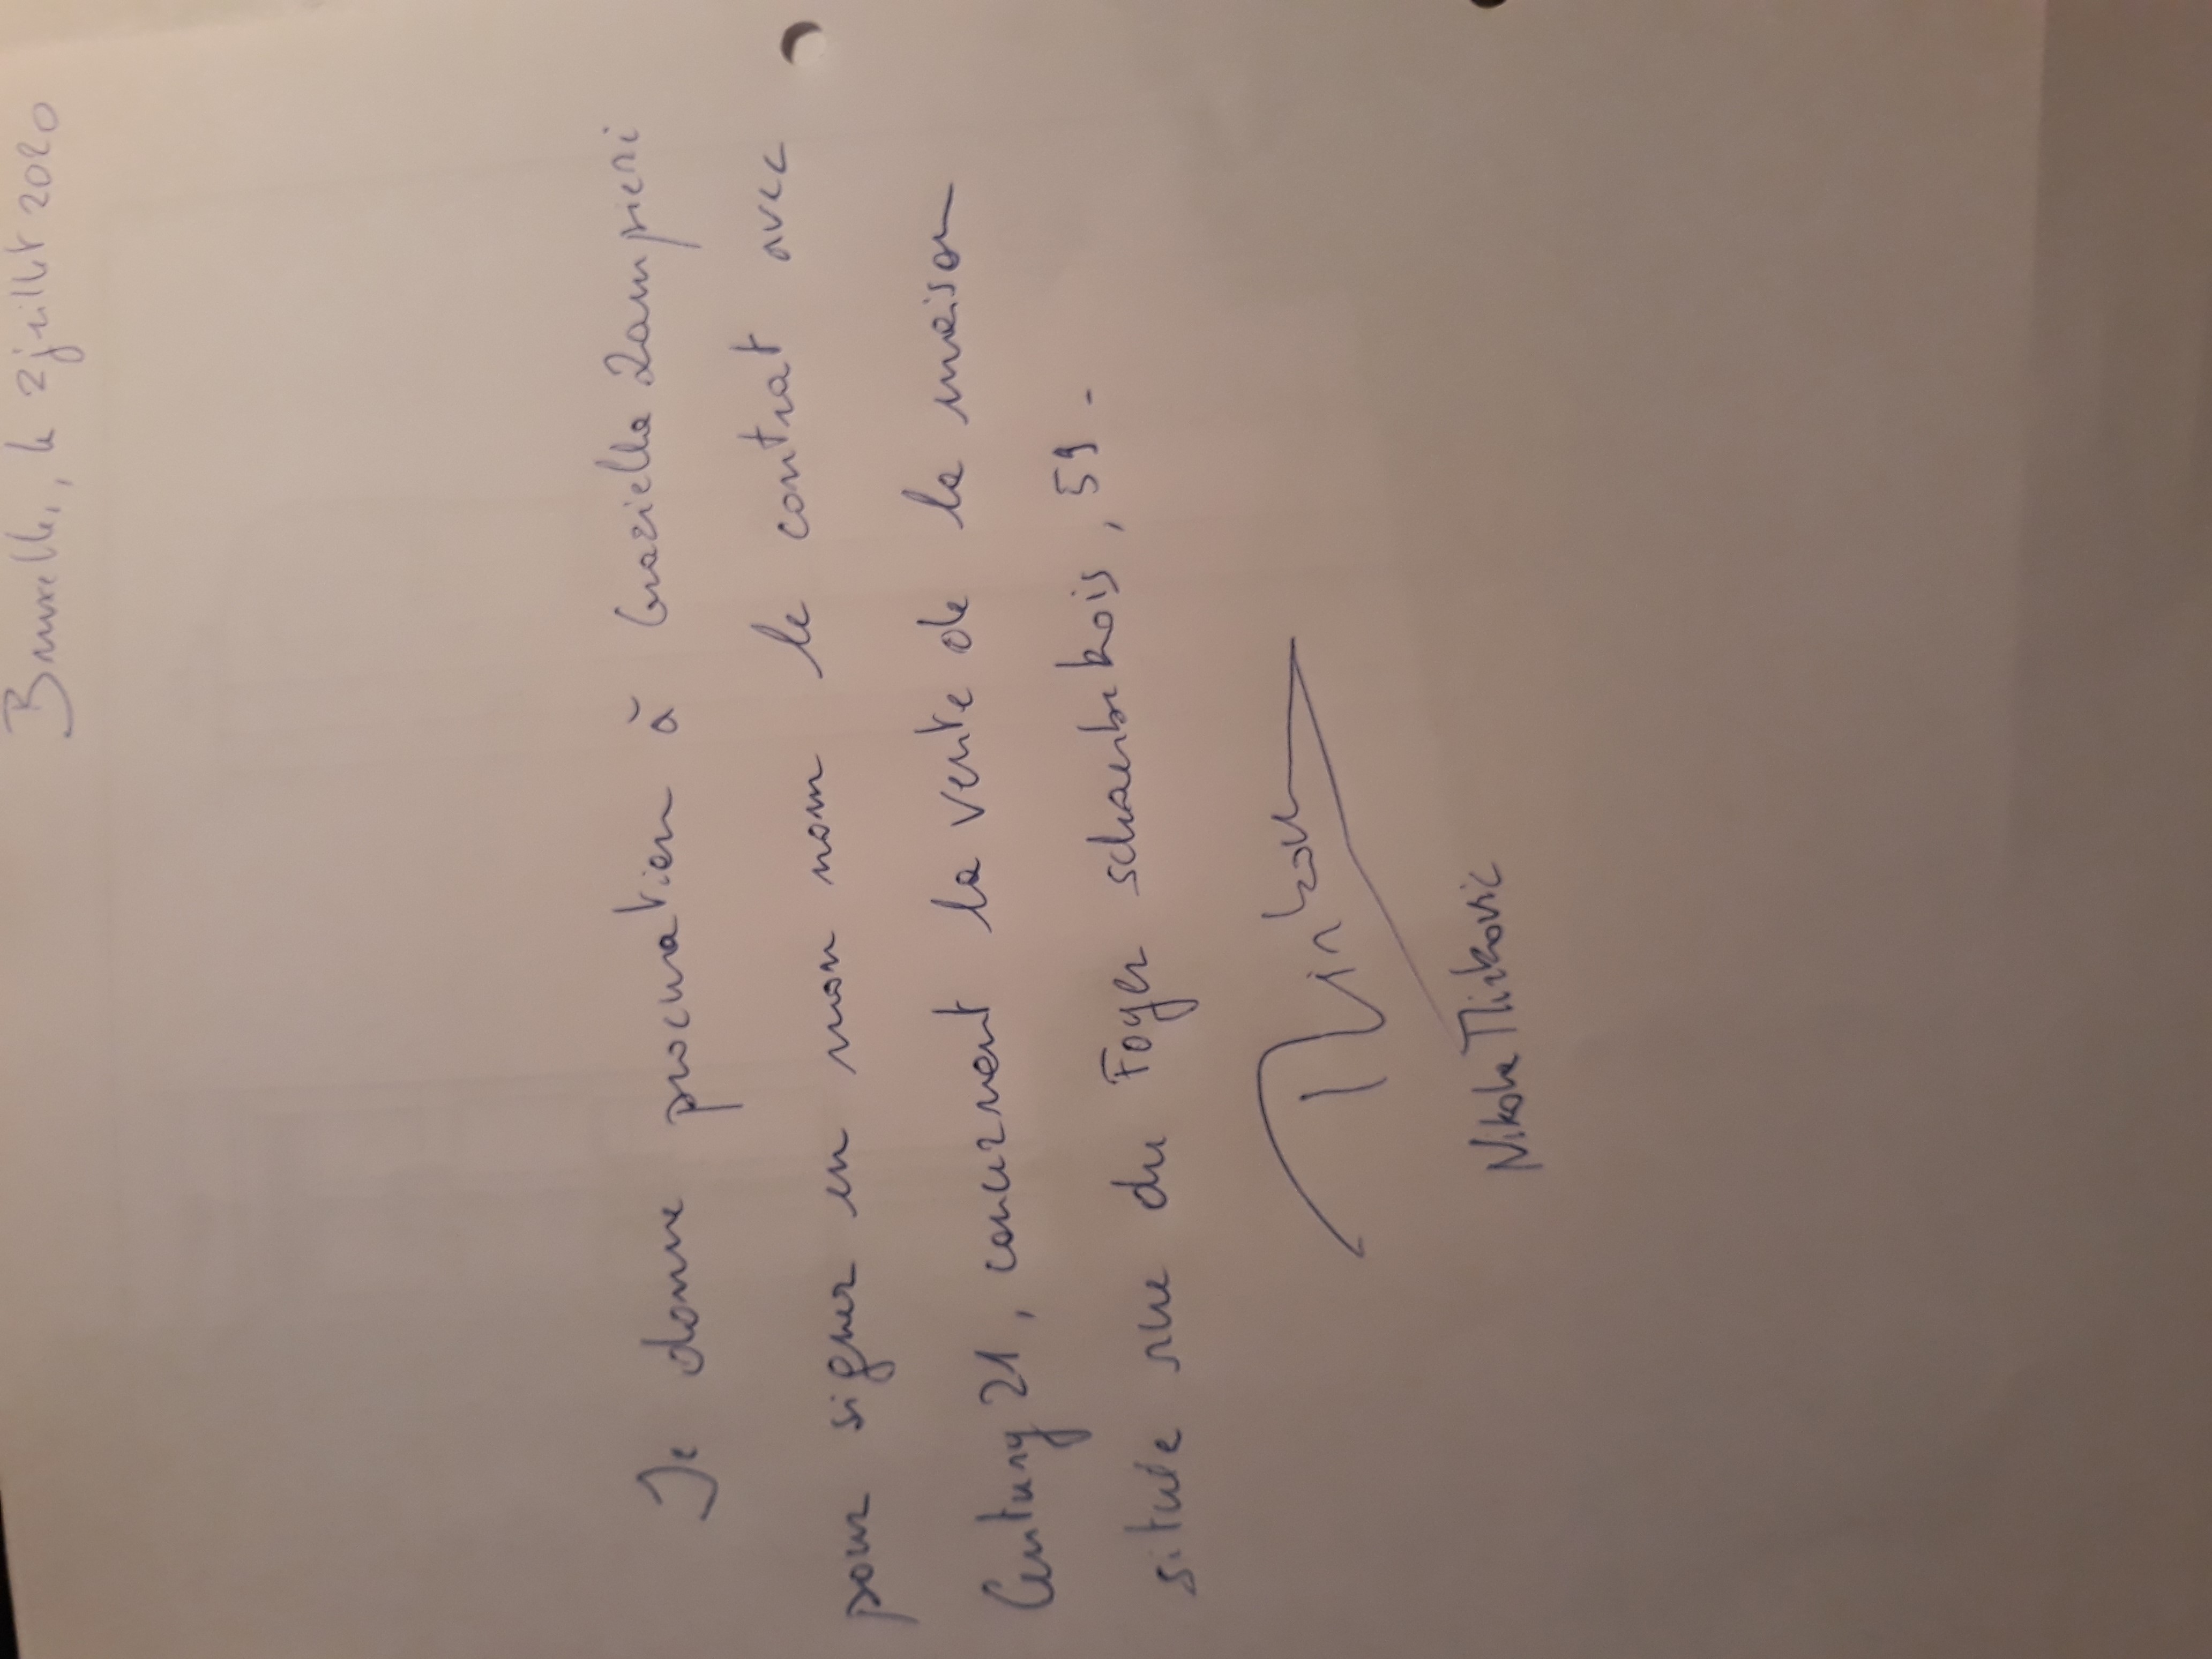 Bruxelles, le 2 juillet 2020
Je donne procuration à Graziella Zampieri
pour signer en mon nom le contrat avec
Century 21, concernant la vente de la maison
située rue du Foyer schaerbeekois, 59 -
Nikola Minkovic